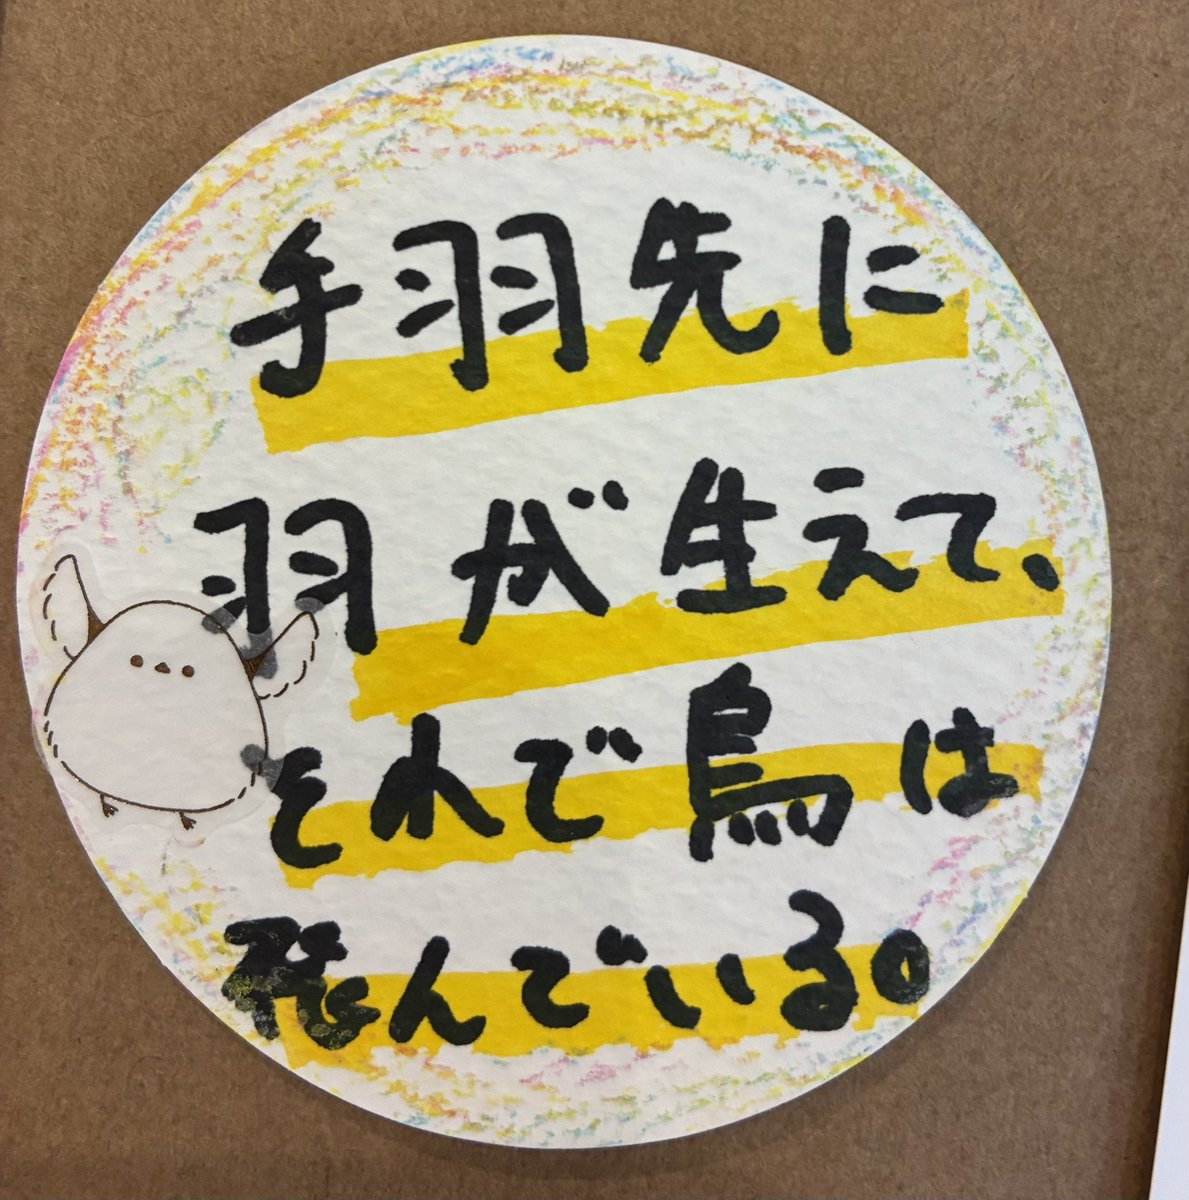 手羽先に
羽が生えて、
それで鳥は
飛んでいる。